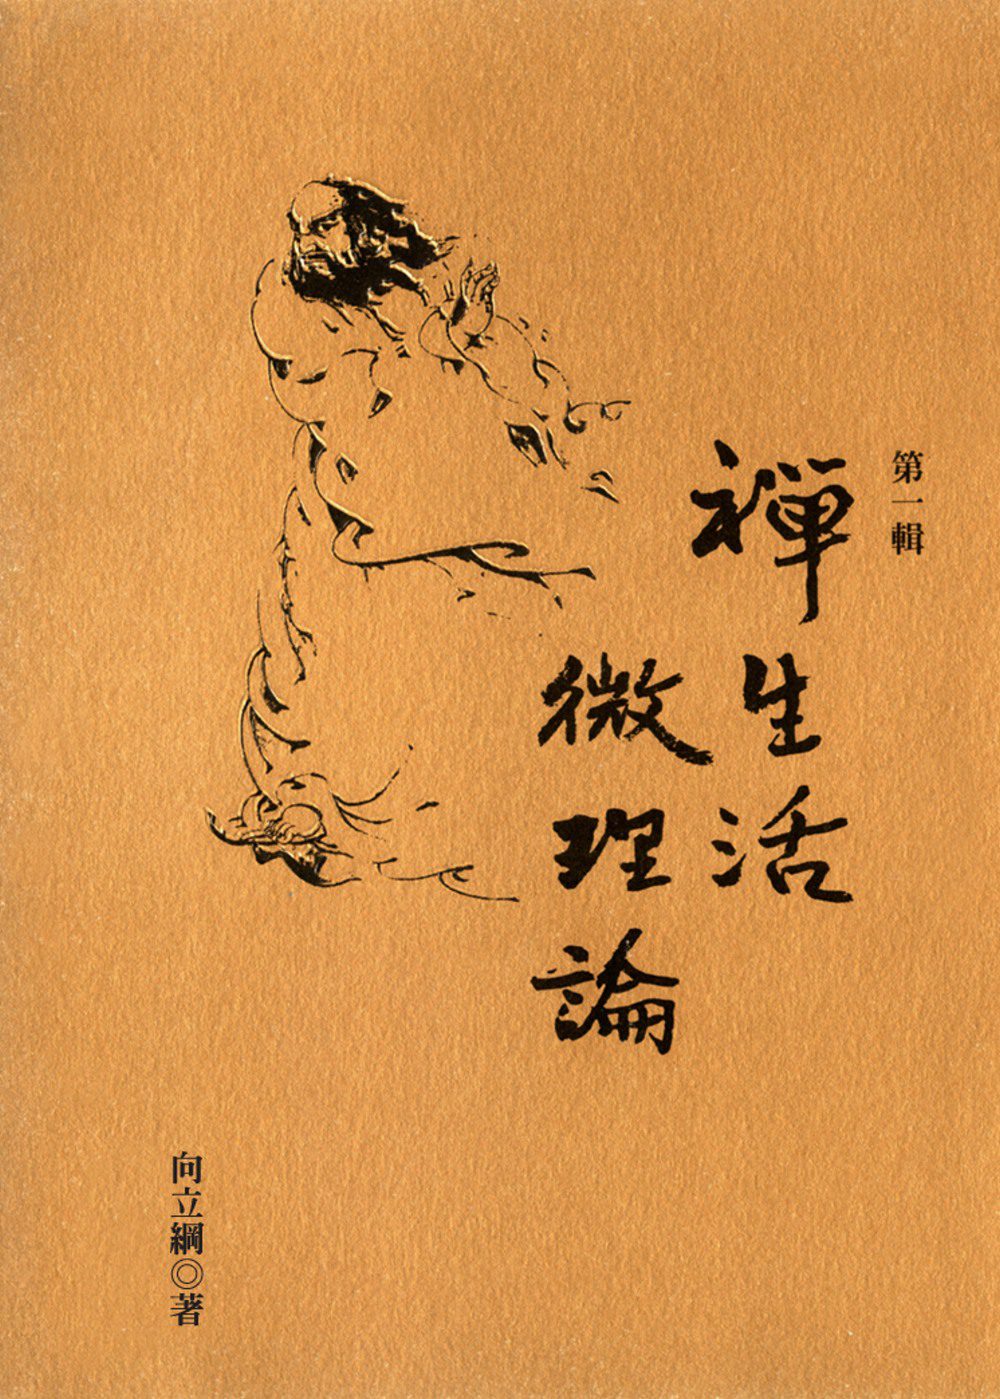 第一輯
禪生活
微理論
向立綱◎著